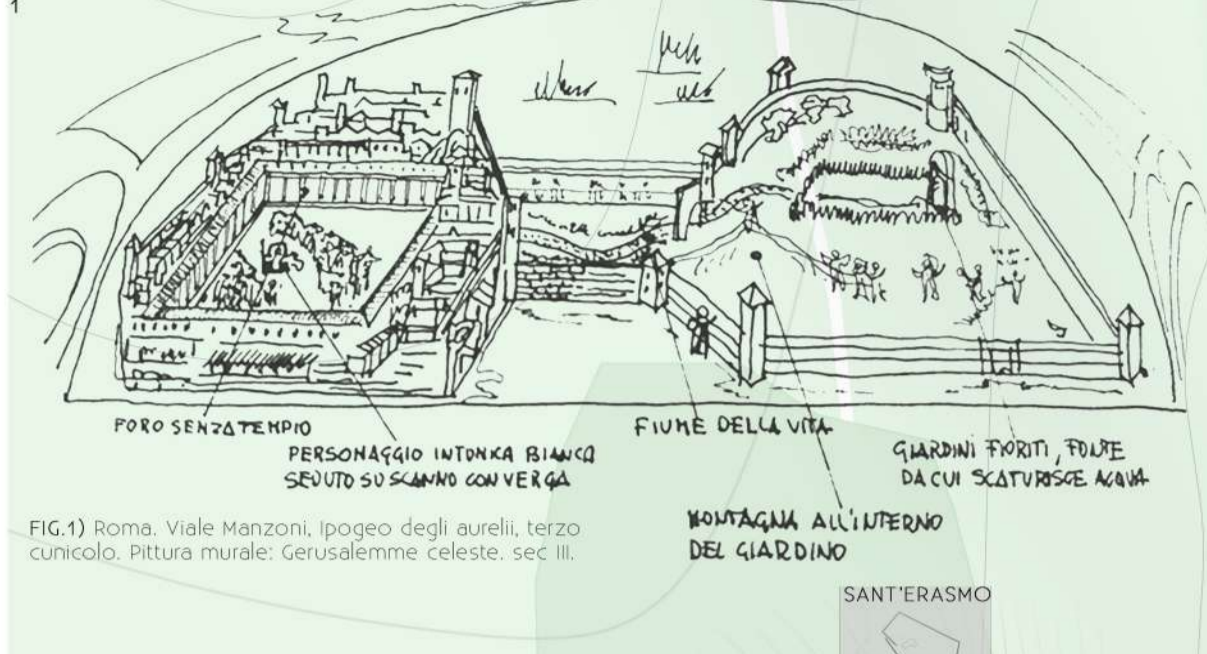 1
FORO SENZA TEMPIO
PERSONAGGIO IN TONICA BIANCA
SEDUTO SU SCANNO CON VERGA
FIUME DELLA VITA
GIARDINI FIORITI, FONTE
DA CUI SCATURISCE ACQUA
MONTAGNA ALL'INTERNO
DEL GIARDINO
FIG.1) Roma. Viale Manzoni, Ipogeo degli aurelii, terzo
cunicolo. Pittura murale: Gerusalemme celeste. sec III.
SANT'ERASMO